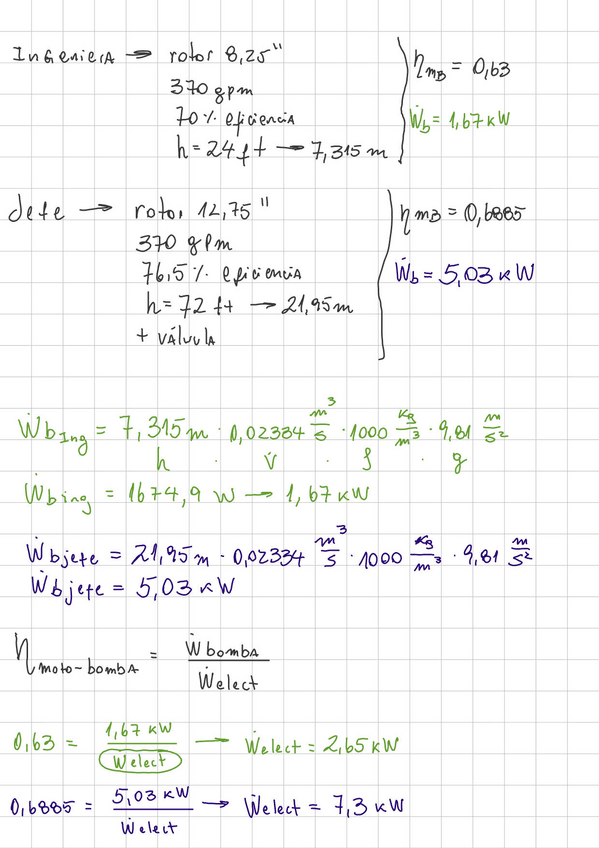 IngenierA → rotor 8,25"
370 gpm
70% eficienciA
h = 24 ft → 7,315 m
η mB = 0,63
Ẇb = 1,67 kW
Jefe → rotor 12,75"
370 gpm
76,5% eficienciA
h = 72 ft → 21,95 m
+ válvulA
η mB = 0,6885
Ẇb = 5,03 kW
Ẇb Ing = 7,315 m · 0,02334 m³/s · 1000 kg/m³ · 9,81 m/s²
h · v̇ · ρ · g
Ẇb ing = 1674,9 W → 1,67 kW
Ẇb jefe = 21,95 m · 0,02334 m³/s · 1000 kg/m³ · 9,81 m/s²
Ẇb jefe = 5,03 kW
η moto-bombA = Ẇ bombA / Ẇelect
0,63 = 1,67 kW / Ẇelect → Ẇelect = 2,65 kW
0,6885 = 5,03 kW / Ẇelect → Ẇelect = 7,3 kW